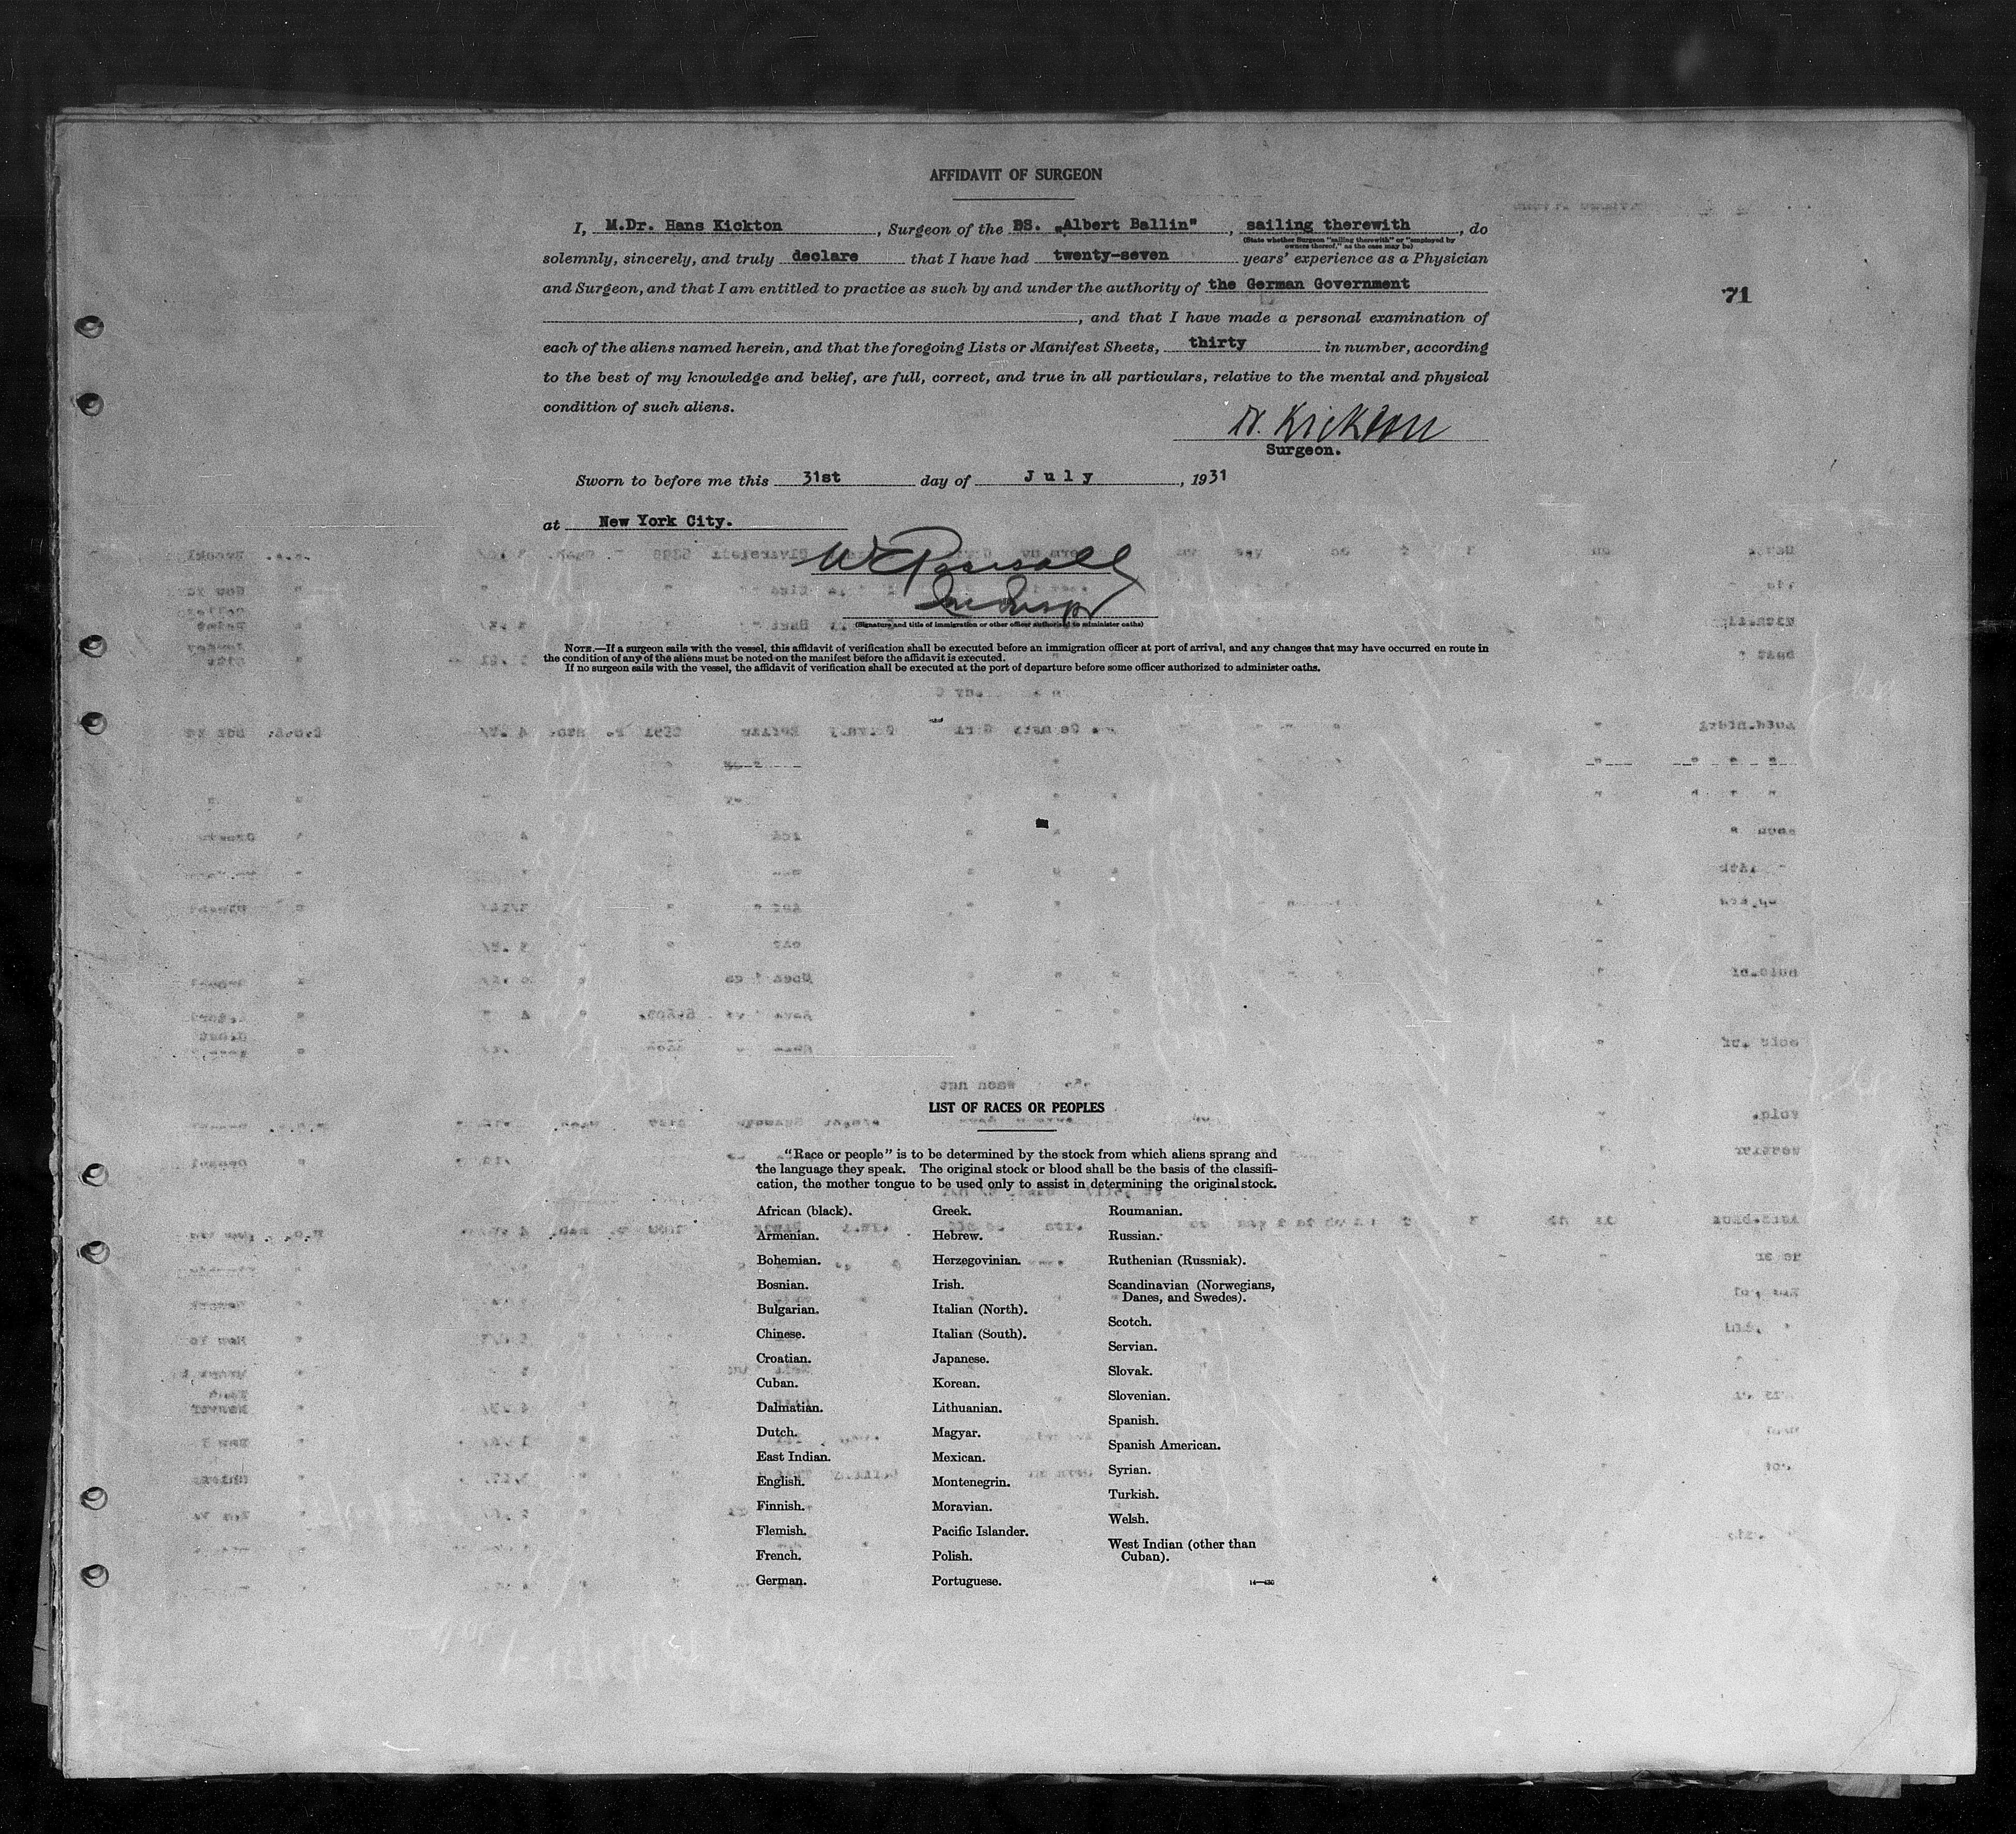 AFFIDAVIT OF SURGEON
I, M.Dr. Hans Kickton, Surgeon of the DS. „Albert Ballin", sailing therewith, do
(State whether Surgeon "sailing therewith" or "employed by
owners thereof," as the case may be)
solemnly, sincerely, and truly declare that I have had twenty-seven years' experience as a Physician
and Surgeon, and that I am entitled to practice as such by and under the authority of the German Government
71
, and that I have made a personal examination of
each of the aliens named herein, and that the foregoing Lists or Manifest Sheets, thirty in number, according
to the best of my knowledge and belief, are full, correct, and true in all particulars, relative to the mental and physical
condition of such aliens.
Kickton
Surgeon.
Sworn to before me this 31st day of July, 1931
at New York City.
(Signature and title of immigration or other officer authorized to administer oaths)
NOTE.—If a surgeon sails with the vessel, this affidavit of verification shall be executed before an immigration officer at port of arrival, and any changes that may have occurred en route in
the condition of any of the aliens must be noted on the manifest before the affidavit is executed.
If no surgeon sails with the vessel, the affidavit of verification shall be executed at the port of departure before some officer authorized to administer oaths.
LIST OF RACES OR PEOPLES
"Race or people" is to be determined by the stock from which aliens sprang and
the language they speak. The original stock or blood shall be the basis of the classifi-
cation, the mother tongue to be used only to assist in determining the original stock.
African (black).
Armenian.
Bohemian.
Bosnian.
Bulgarian.
Chinese.
Croatian.
Cuban.
Dalmatian.
Dutch.
East Indian.
English.
Finnish.
Flemish.
French.
German.
Greek.
Hebrew.
Herzegovinian.
Irish.
Italian (North).
Italian (South).
Japanese.
Korean.
Lithuanian.
Magyar.
Mexican.
Montenegrin.
Moravian.
Pacific Islander.
Polish.
Portuguese.
Roumanian.
Russian.
Ruthenian (Russniak).
Scandinavian (Norwegians,
Danes, and Swedes).
Scotch.
Servian.
Slovak.
Slovenian.
Spanish.
Spanish American.
Syrian.
Turkish.
Welsh.
West Indian (other than
Cuban).
14—430